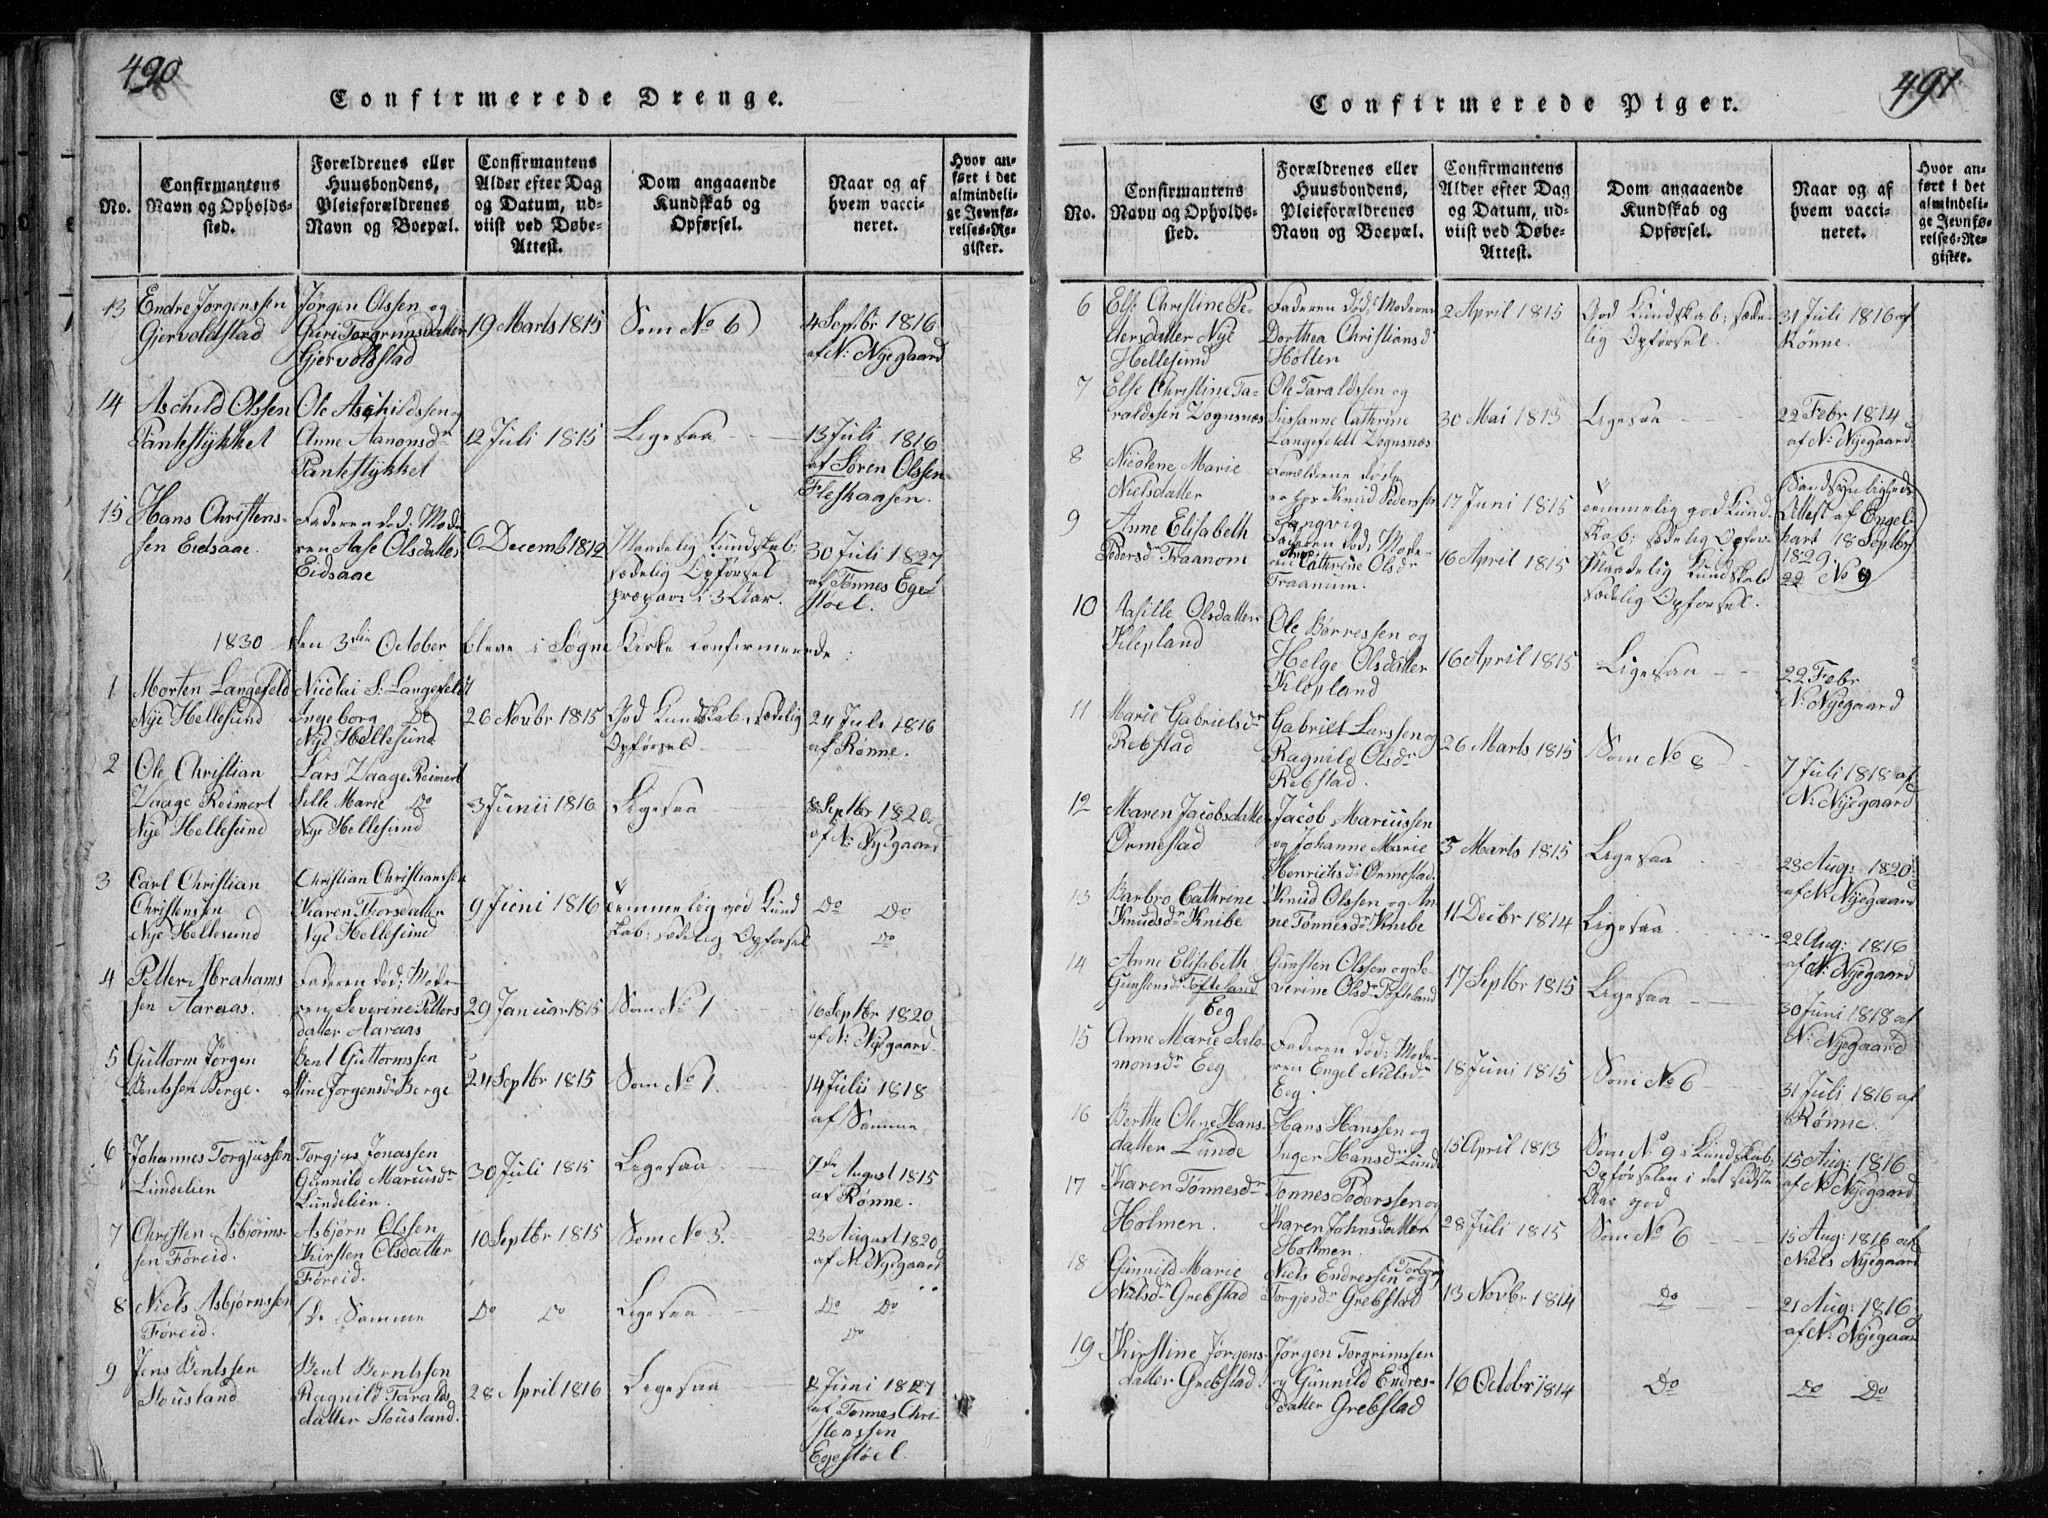 490
Confirmerede Drenge.
No.
Confirmantens
Navn og Opholds-
sted.
Forældrenes eller
Huusbondens,
Pleieforældrenes
Navn og Boepæl.
Confirmantens
Alder efter Dag
og Datum, ud-
viist ved Døbe-
Attest.
Dom angaaende
Kundskab og
Opførsel.
Naar og af
hvem vacci-
neret.
Hvor an-
ført i det
almindeli-
ge Jevnfø-
relses-Re-
gister.
13
Endre Jørgenssen
Gjervoldstad
Jørgen Olssen og
Guri Torgrimsdatter
Gjervoldstad
19 Marts 1815
Som No 6
4 Septbr 1816
af N: Nyegaard
14
Aschild Olssen
Tantestykket
Ole Aschildssen og
Anne Aanonsdr
Tantestykket
12 Juli 1815
Ligesaa
13 Juli 1816
af Søren Olssen
Fleskaasen.
15
Hans Christens-
sen Eidsaae.
Faderen død; Mode
ren Aase Olsdatter
Eidsaae
6 Decemb 1812
Maadelig Kundskab;
sædelig Opførsel
præpar: i 3 Aar.
30 Juli 1827
af Tønnes Ege-
støel.
1830 den 3die October bleve i Søgne Kirke confirmerede:
1
Morten Langefeld
Nye Hellesund
Nicolai S: Langefeldt
Ingeborg Do
Nye Hellesund
26 Novbr 1815
God Kundskab; sædelig
Opførsel.
24 Juli 1816
af Rønne.
2
Ole Christian
Vaage Reimert
Nye Hellesund
Lars Vaage Reimert
Sille Marie Do
Nye Hellesund
3 Junii 1816
Ligesaa
8 Septbr 1820
af N: Nyegaard
3
Carl Christian
Christensen
Nye Hellesund
Christian Christianssen
Karen Thorsdatter
Nye Hellesund
9 Juni 1816
Temmelig god Kund
skab; sædelig Opførsel
Do Do
Do
4
Petter Abrahams
sen Aaraas.
Faderen død; Mode-
ren Severine Petters
datter Aaraas
29 Januar 1815
Som No 1
16 Septbr 1820
af N: Nyegaard.
5
Guttorm Jørgen
Bentssen Berge.
Bent Guttormssen
Stine Jørgensdr Berge
24 Septbr 1815
Som No 1.
14 Julis 1818
af Samme
6
Johannes Torgjussen
Lundelien
Torgjus Jonassen
Gunnild Mariusdr
Lundelien.
30 Juli 1815
Ligesaa
7de August 1815
af Rønne.
7
Christen Asbjørns-
sen Føreid.
Asbjørn Olssen
Kirsten Olsdatter
Føreid.
10 Septbr 1815
Som No 3.
23 August 1820
af N: Nyegaard
8
Niels Asbjørnssen
Føreid.
De Samme
Do Do
Ligesaa
Do Do
Do
9
Jens Bentssen
Stousland
Bent Berntssen
Ragnild Taralds
datter Stousland.
28 April 1816
Ligesaa
8 Juni 1827
af Tønnes Chri-
stenssen
Egestøel.
491
Confirmerede Piger.
No.
Confirmantens
Navn og Opholds-
sted.
Forældrenes eller
Huusbondens,
Pleieforældrenes
Navn og Boepæl.
Confirmantens
Alder efter Dag
og Datum, ud-
viist ved Døbe-
Attest.
Dom angaaende
Kundskab og
Opførsel.
Naar og af
hvem vacci-
neret.
Hvor an-
ført i det
almindeli-
ge Jevnfø-
relses-Re-
gister.
6
Else Christine Pe-
dersdatter Nye
Hellesund
Faderen død; Moderen
Dorthea Christiansd
Holten
2 April 1815
God Kundskab; sæde-
lig Opførsel.
31 Juli 1816 af
Rønne.
7
Else Christine Ta-
raldssen Dognsnæs
Ole Taraldssen og
Susanne Cathrine
Langefeldt Dognsnæs
30 Mai 1813
Ligesaa
22 Febr 1814
af N: Nyegaard
8
Nicolene Marie
Nielsdatter
Forældrene døde
Knud Pederssen
Langvig
17 Juni 1815
Temmelig god Kund-
skab; sædelig Opfør-
Sandsynligheds
Attest af Engel-
hart 18 Septbr
1829.
22 No 9
9
Anne Elisabeth
Pedersdr Traanom
Faderen død; Mode-
ren Anne Cathrine Olsdr
Traanum.
16 April 1815
Maadelig Kundskab
sædelig Opførsel.
10
Aasille Olsdatter
Klepland
Ole Børressen og
Helge Olsdatter
Klepland
16 April 1815
Ligesaa
22 Febr
N: Nyegaard
11
Marie Gabrielsdr
Rebstad
Gabriel Larssen og
Ragnild Olsdr
Rebstad.
26 Marts 1815
Som No 8
7 Juli 1818 af
N: Nyegaard
12
Maren Jacobsdatter
Ormestad
Jacob Mariussen
og Johanne Marie
Henrichsdr Ormestad.
5 Marts 1815
Ligesaa
23 Aug: 1820
af N: Nyegaard
13
Barbro Cathrine
Knudsdr Knibe
Knud Olssen og An
ne Tønnesdr Knibe
11 Decbr 1814
Ligesaa
22 Aug: 1816
af N: Nyegaard
14
Anne Elisabeth
Gunstensdr Tofteland
Eeg
Gunsten Olssen og Se-
verine Olsdr Tofteland
17 Septbr 1815
Ligesaa
30 Juni 1818 af
N: Nyegaard
15
Anne Marie Salo-
monsdr Eeg
Faderen død; Mode-
ren Engel Nielsdr
Eeg.
18 Juni 1815
Som No 6
31 Juli 1816 af
Rønne.
16
Berthe Olene Hans-
datter Lunde
Hans Hanssen og
Inger Hansdr Lund
15 April 1813
Som No 9 i Kundskab;
Opførselen i det sidste
Aar god
15 Aug: 1816
af N: Nyegaard
17
Karen Tønnesdr
Holmen.
Tønnes Pederssen og
Karen Johnsdatter
Holmen.
28 Juli 1815
Som No 6
15 Aug: 1816 af
Niels Nyegaard
18
Gunnild Marie
Nielsdr Grebstad
Niels Endressen og Torborg
Torgjesdr Grebstad
13 Novbr 1814
Do
21 Aug: 1816
af N: Nyegaar
19
Kirstine Jørgens-
datter Grebstad.
Jørgen Torgrimssen
og Gunnild Endres-
datter Grebstad
16 Octobr 1814
Do
Do Do